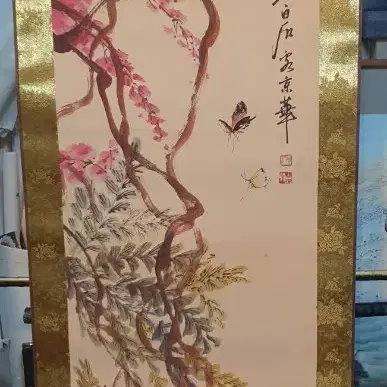 白石客京華